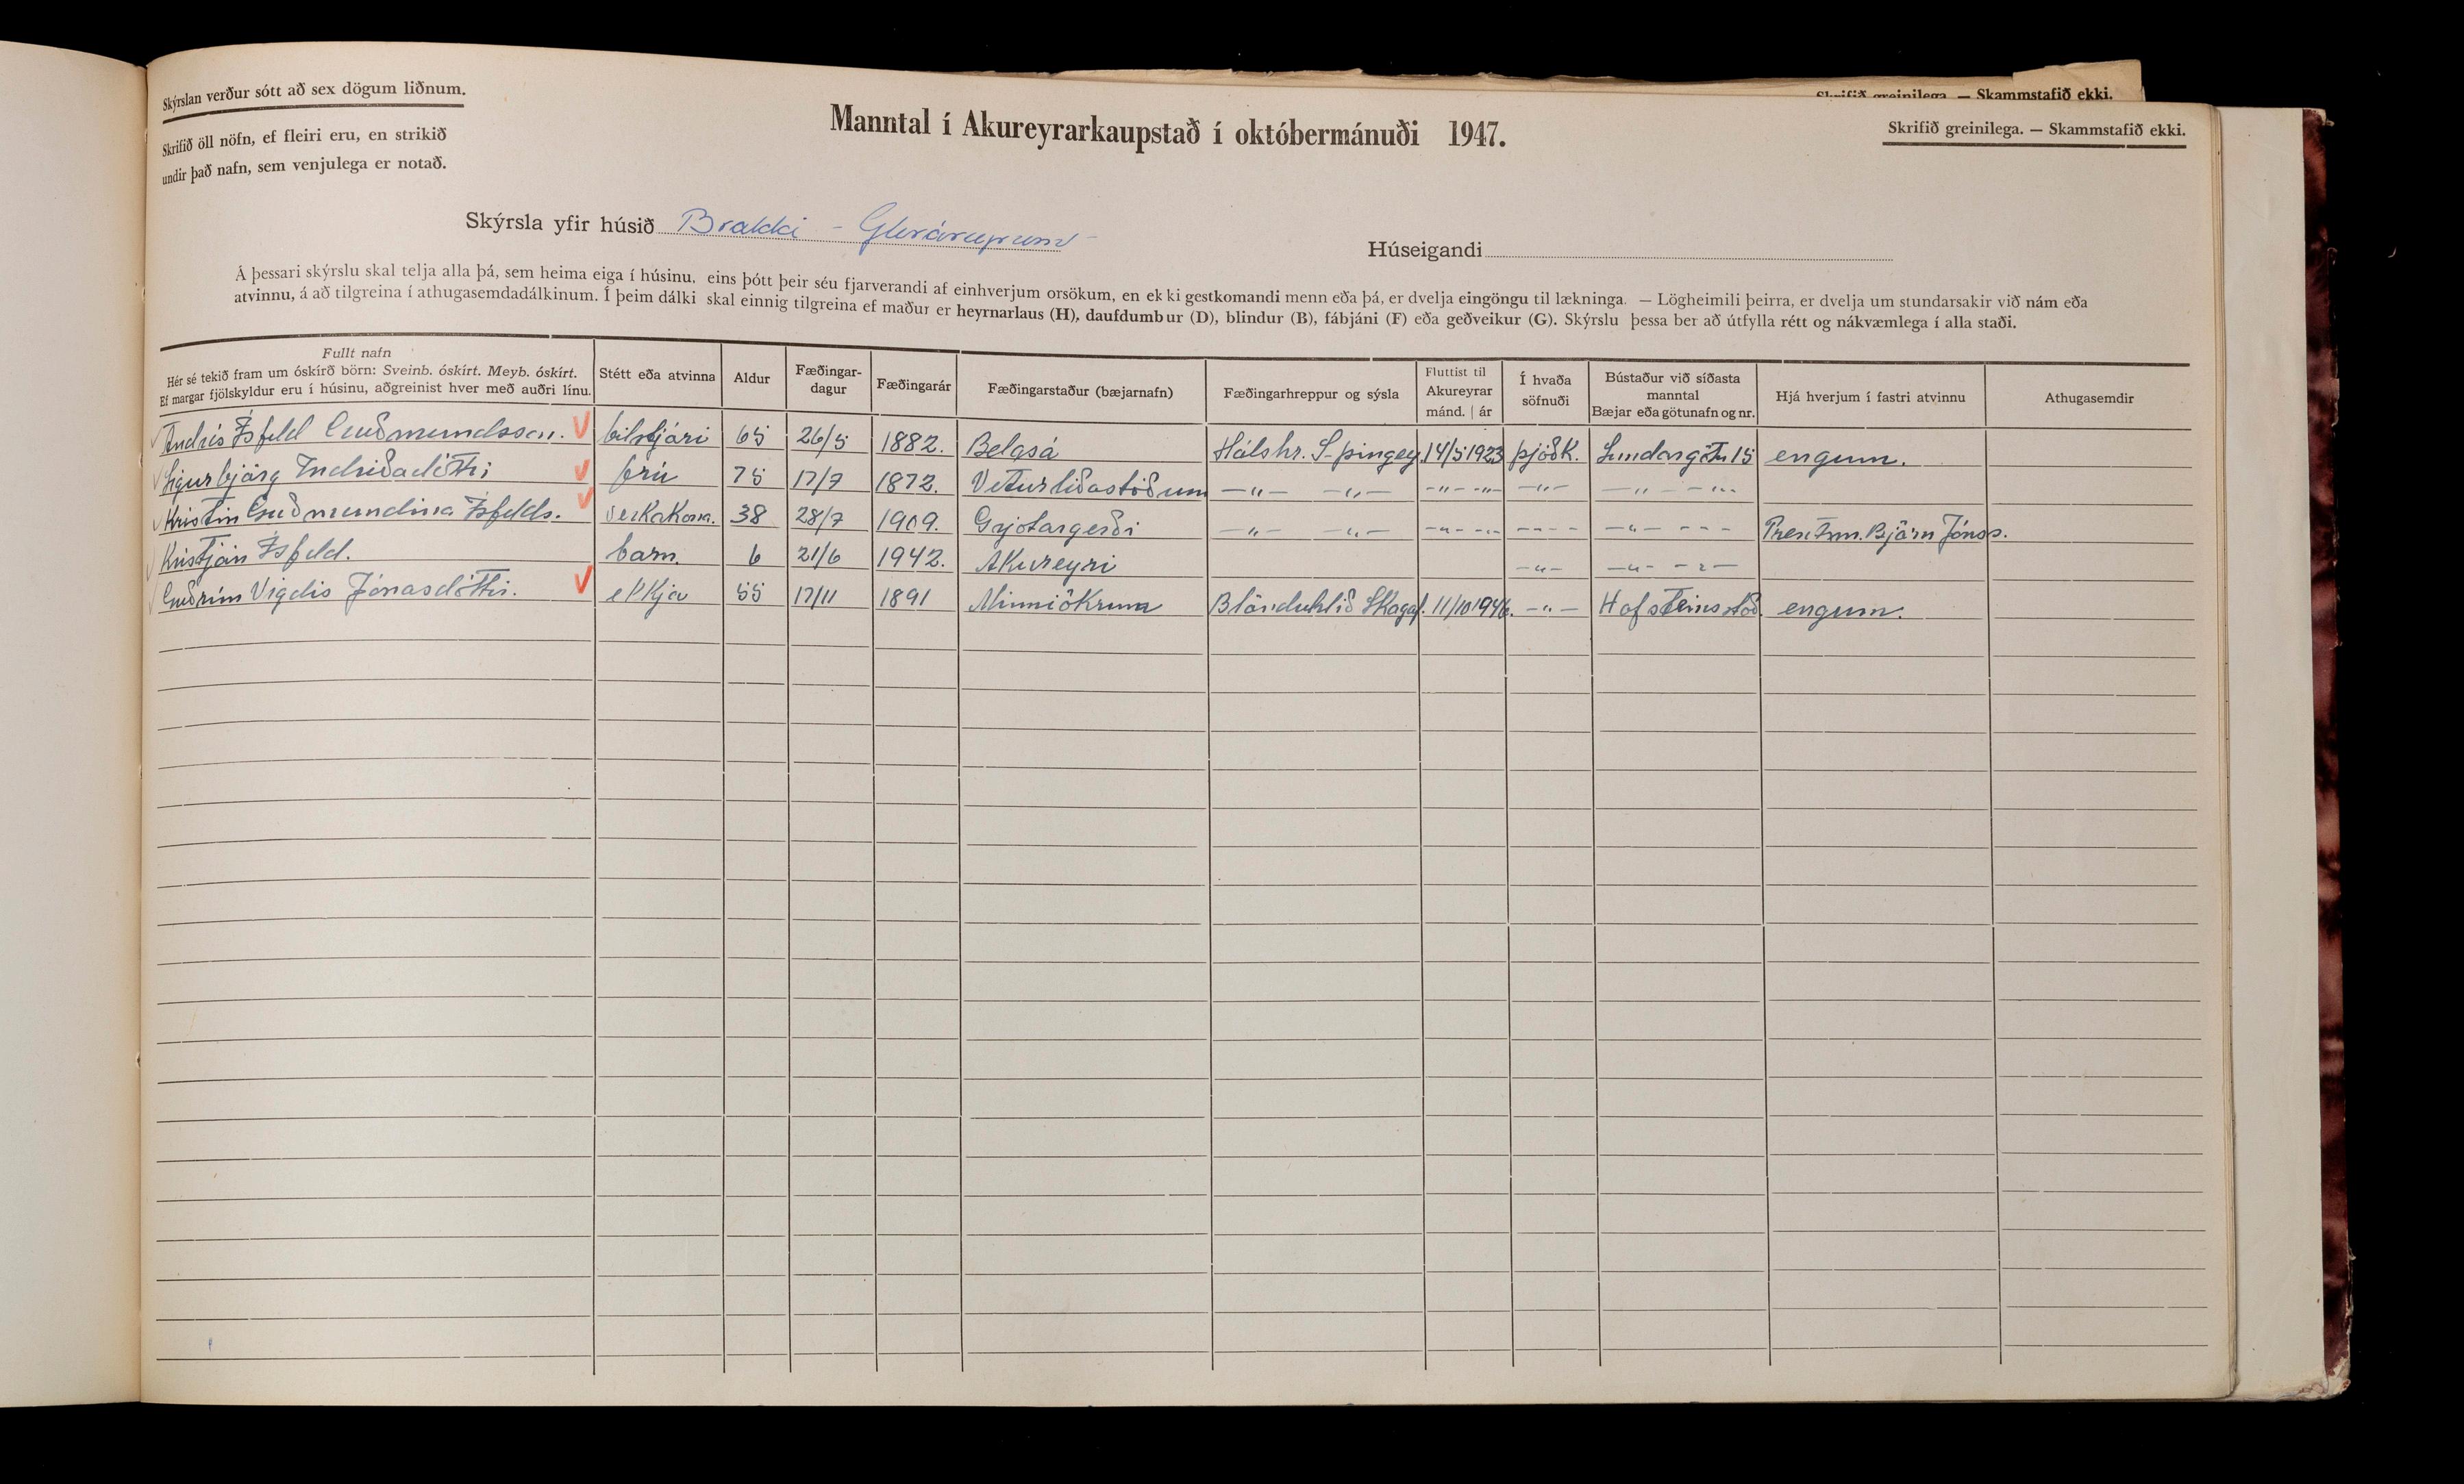 Skrifið greinilega. — Skammstafið ekki.
Skýrslan verður sótt að sex dögum liðnum.
Skrifið öll nöfn, ef fleiri eru, en strikið
undir það nafn, sem venjulega er notað.
Manntal í Akureyrarkaupstað í októbermánuði 1947.
Skrifið greinilega. — Skammstafið ekki.
Skýrsla yfir húsið Brakki -
Húseigandi
Á þessari skýrslu skal telja alla þá, sem heima eiga í húsinu, eins þótt þeir séu fjarverandi af einhverjum orsökum, en ekki gestkomandi menn eða þá, er dvelja eingöngu til lækninga. — Lögheimili þeirra, er dvelja um stundarsakir við nám eða
atvinnu, á að tilgreina í athugasemdadálkinum. Í þeim dálki skal einnig tilgreina ef maður er heyrnarlaus (H), daufdumbur (D), blindur (B), fábjáni (F) eða geðveikur (G). Skýrslu þessa ber að útfylla rétt og nákvæmlega í alla staði.
Fullt nafn
Hér sé tekið fram um óskírð börn: Sveinb. óskírt. Meyb. óskírt.
Ef margar fjölskyldur eru í húsinu, aðgreinist hver með auðri línu.
Stétt eða atvinna
Aldur
Fæðingar-
dagur
Fæðingarár
Fæðingarstaður (bæjarnafn)
Fæðingarhreppur og sýsla
Fluttist til
Akureyrar
mánd. | ár
Í hvaða
söfnuði
Bústaður við síðasta
manntal
Bæjar eða götunafn og nr.
Hjá hverjum í fastri atvinnu
Athugasemdir
Andrés Ísfeld Guðmundsson. bílstjóri 65 26/5 1882. Belgsá Hálshr. S-þingey. 14/5 1923 þjóðk. Lundargötu 15 engum.
Sigurbjörg Indriðadóttir frú 75 17/7 1872. Veturliðastöðum —"— —"— —"— —"— —"— —"— —"—
Kristín Guðmundína Ísfelds. verkakona. 38 28/7 1909. Grjótargerði —"— —"— —"— —"— —"— Prentsm. Björn Jónss.
Kristján Ísfeld. barn. 6 21/6 1942. Akureyri —"— —"— —"—
Guðrún Vigdís Jónasdóttir. ekkja 55 17/11 1891 Minniökrum Blönduhlíð Skagaf. 11/10 1946. —"— Hofsteinsstöð. engum.